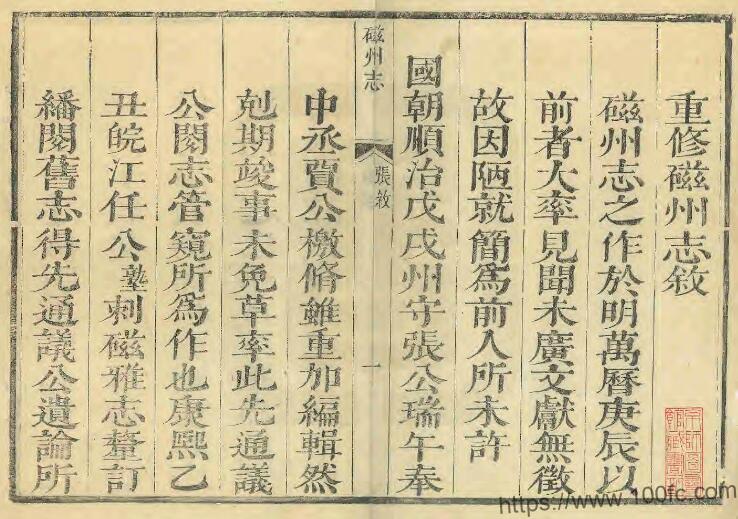 重修磁州志敘
磁州志之作於明萬曆庚辰以
前者大率見聞未廣文獻無徵
故因陋就簡為前人所未許
國朝順治戊戌州守張公瑞午奉
磁州志
張敘
一
中丞賈公檄脩雖重加編輯然
剋期竣事未免草率此先通議
公閱志管窺所為作也康熙乙
丑皖江任公塾刺磁雅志釐訂
繙閱舊志得先通議公遺論所
https://www.100fc.com